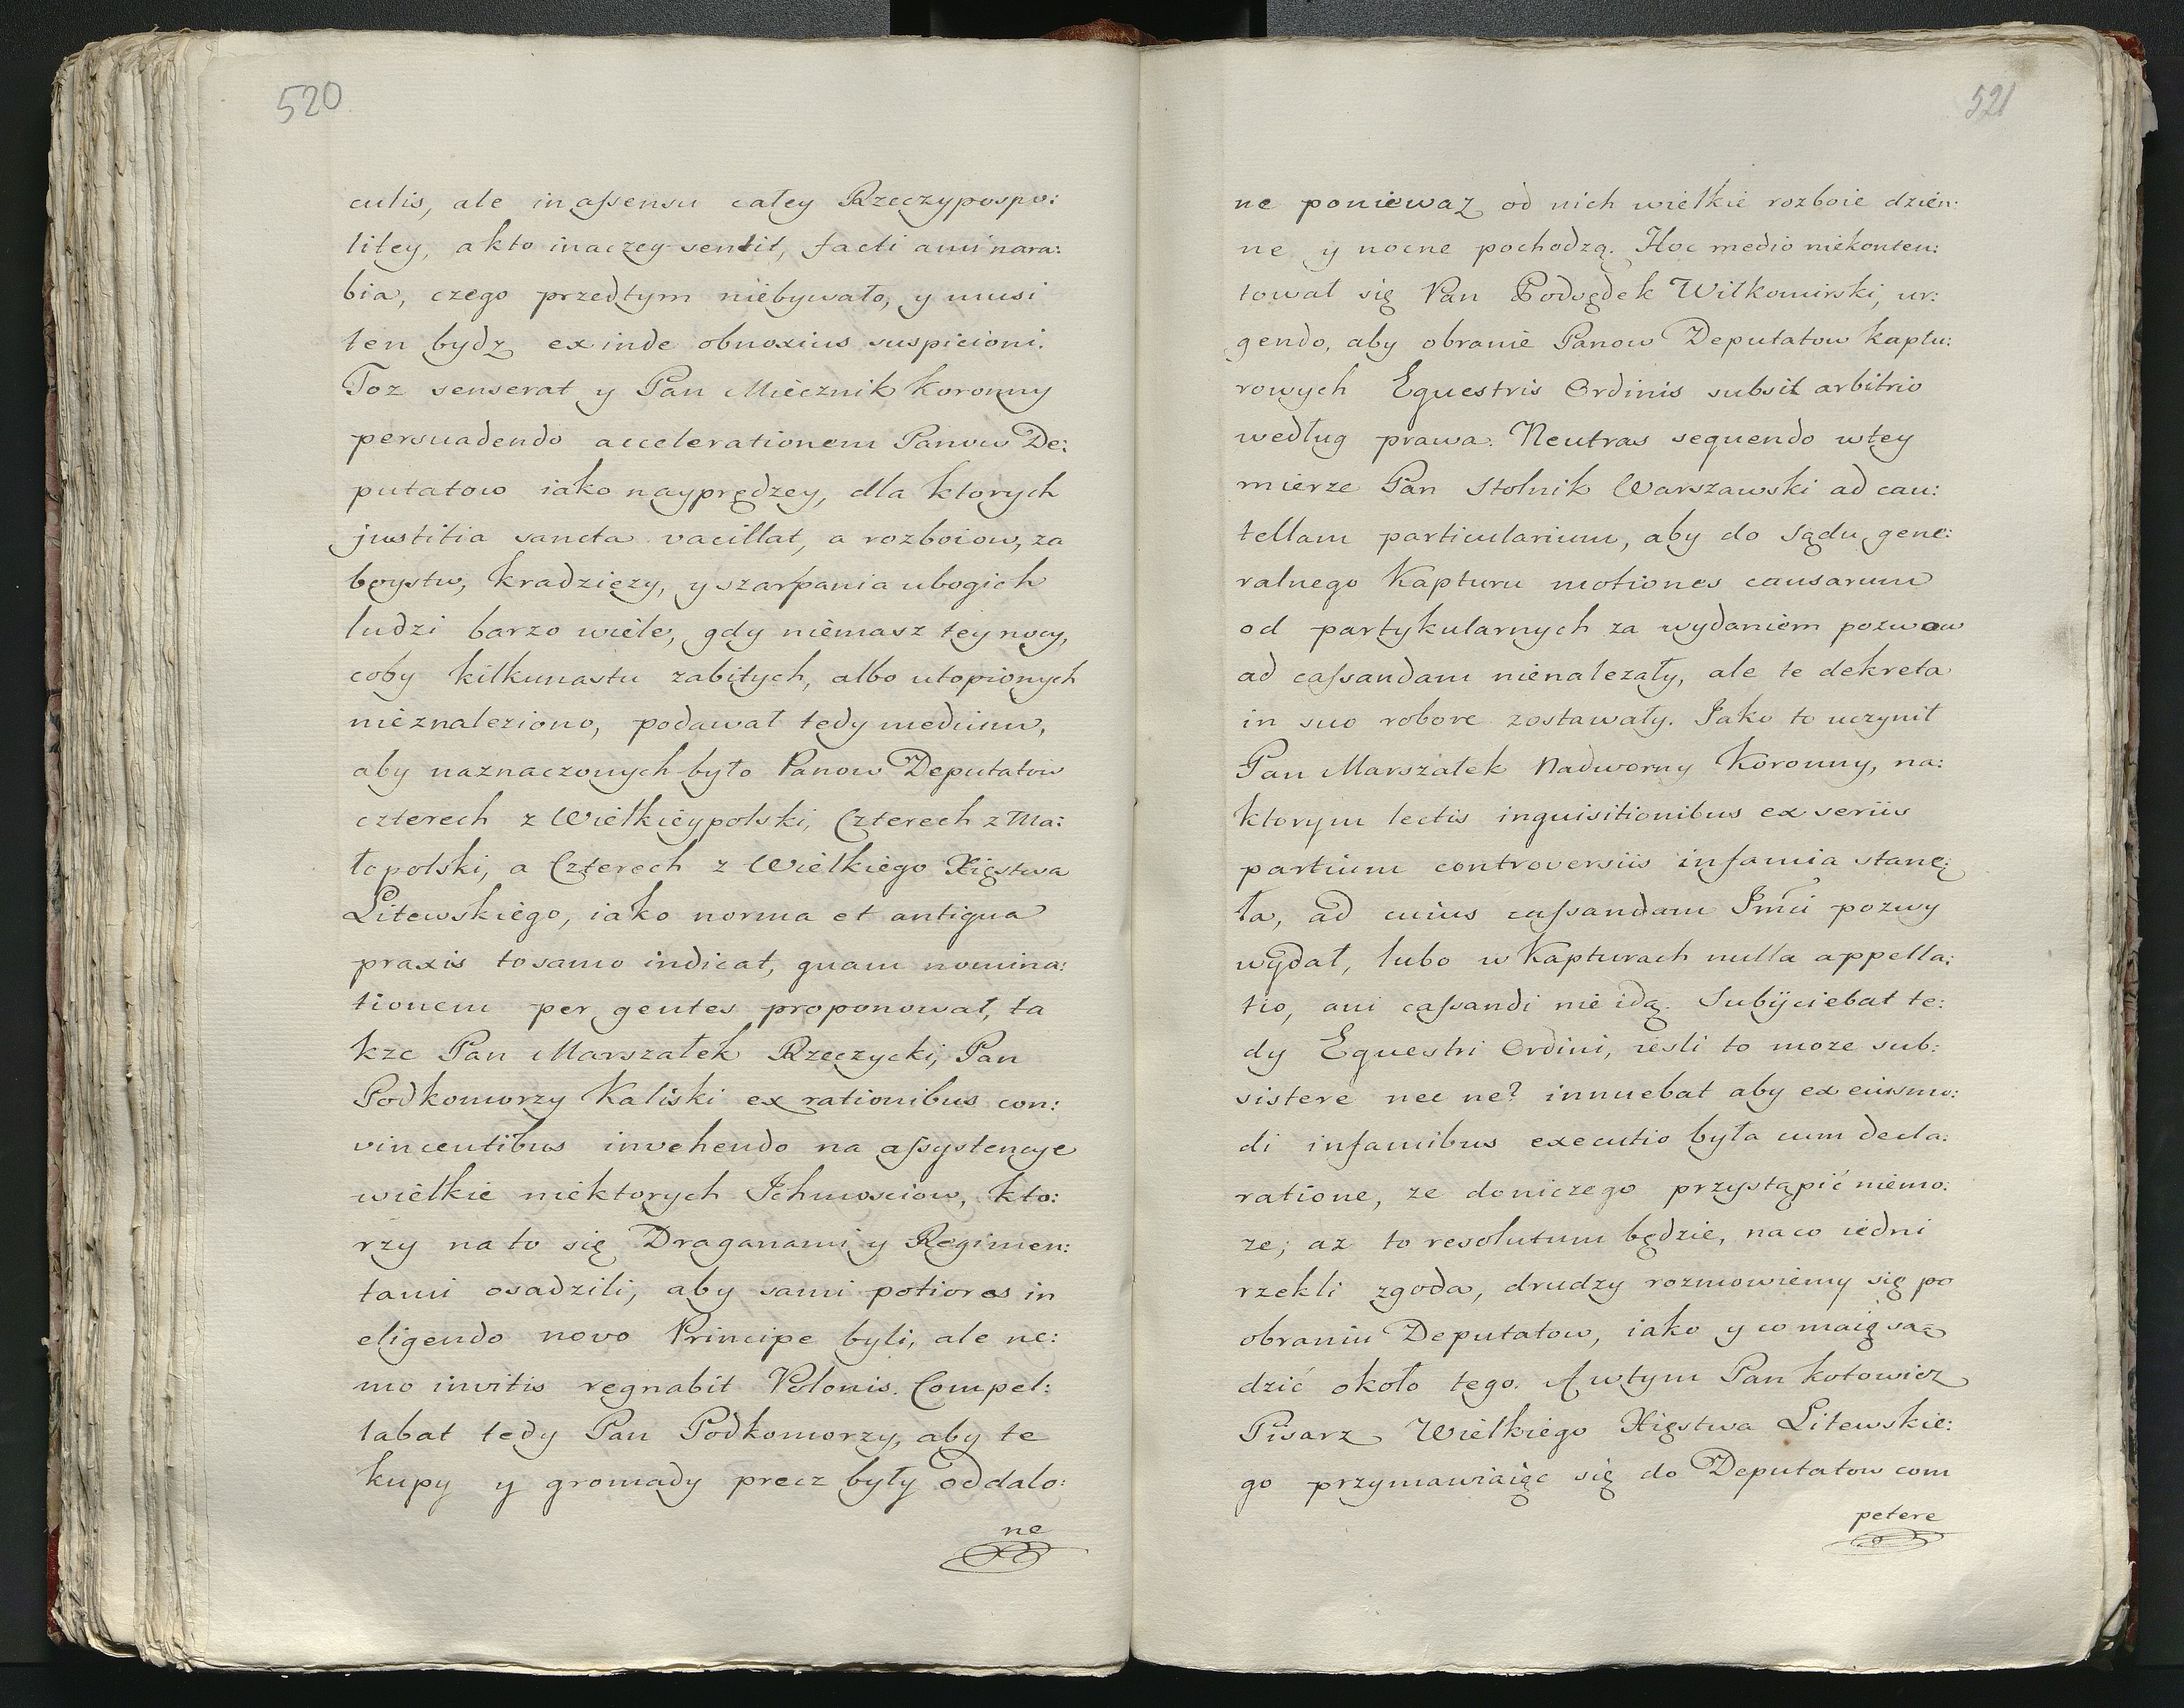 520
culis, ale in assensu całey Rzeczypospo:
litey, a kto inaczey sentit, facti
bia, czego przedtym niebywało, y musi
ten bydz ex inde obnoxius suspicioni.
Toz senserat y Pan Miecznik koronny
persuadendo accelerationem Panow De:
putatow iako nayprędzey, dla ktorych
justitia sancta vacillat, a rozboiow, za
boystw, kradzieży, y szarpania ubogich
ludzi barzo wiele, gdy niemasz tey nocy,
coby kilkunastu zabitych, albo utopionych
nieznaleziono, podawał tedy medium,
aby naznaczonych było Panow Deputatow
czterech z Wielkieypolski, Czterech z Ma:
łopolski, a Czterech z Wielkiego Xięstwa
Litewskiego, iako norma et antiqua
praxis tosamo indicat, quam nomina:
tionem per gentes proponował, ta
kze Pan Marszałek Rzeczycki, Pan
Podkomorzy Kaliski ex rationibus con:
vincentibus invehendo na assystencye
wielkie niektorych Ichmosciow, kto:
rzy na to się Draganami y Regimen:
tami osadzili, aby sami potiores in
eligendo novo Principe byli, ale ne:
mo invitis regnabit Polonis. Compel:
labat tedy Pan Podkomorzy, aby te
kupy y gromady precz były oddalo:
ne
521
ne poniewaz od nich wielkie rozboie dzien:
ne y nocne pochodzą. Hoc medio niekonten:
tował się Pan Podsędek Wilkomirski, ur:
gendo, aby obranie Panow Deputatow kaptu:
rowych Equestris Ordinis subsit arbitrio
według prawa. Neutras sequendo wtey
mierze Pan Stolnik Warszawski ad cau:
tellam particularium, aby do sądu gene:
ralnego Kapturu motiones causarum
od partykularnych za wydaniem pozwow
ad cassandam nienalezały, ale te dekreta
in suo robore zostawały. Jako to uczynił
Pan Marszałek Nadworny Koronny, na:
ktorym lectis inquisitionibus ex seriis
partium controversiis infamia stanę:
ła, ad cuius cassandam Jmci pozwy
wydał, lubo w Kapturach nulla appella:
tio, ani cassandi nie idą. Subijciebat te:
dy Equestri Ordini, iesli to moze sub:
sistere nec ne? innuebat aby ex eiusmo:
di infamibus executio była cum decla:
ratione, ze doniczego przystąpić niemo:
ze, az to resolutum będzie, na co iedni
rzekli zgoda, drudzy rozmowiemy się po
obraniu Deputatow, iako y co maią są:
dzić około tego. A wtym Pan kotowicz
Pisarz Wielkiego Xięstwa Litewskie:
go przymawiaiąc się do Deputatow com
petere